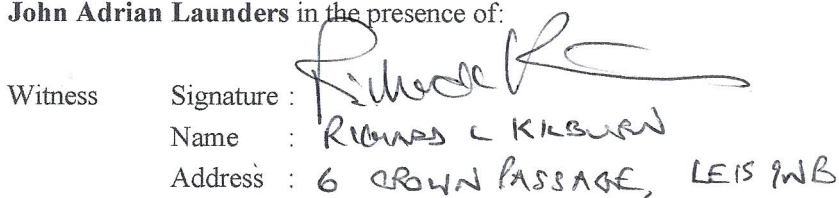 John Adrian Launders in the presence of:
Witness Signature :
Name : RICHARD L KILBURN
Address : 6 CROWN PASSAGE, LE15 9NB